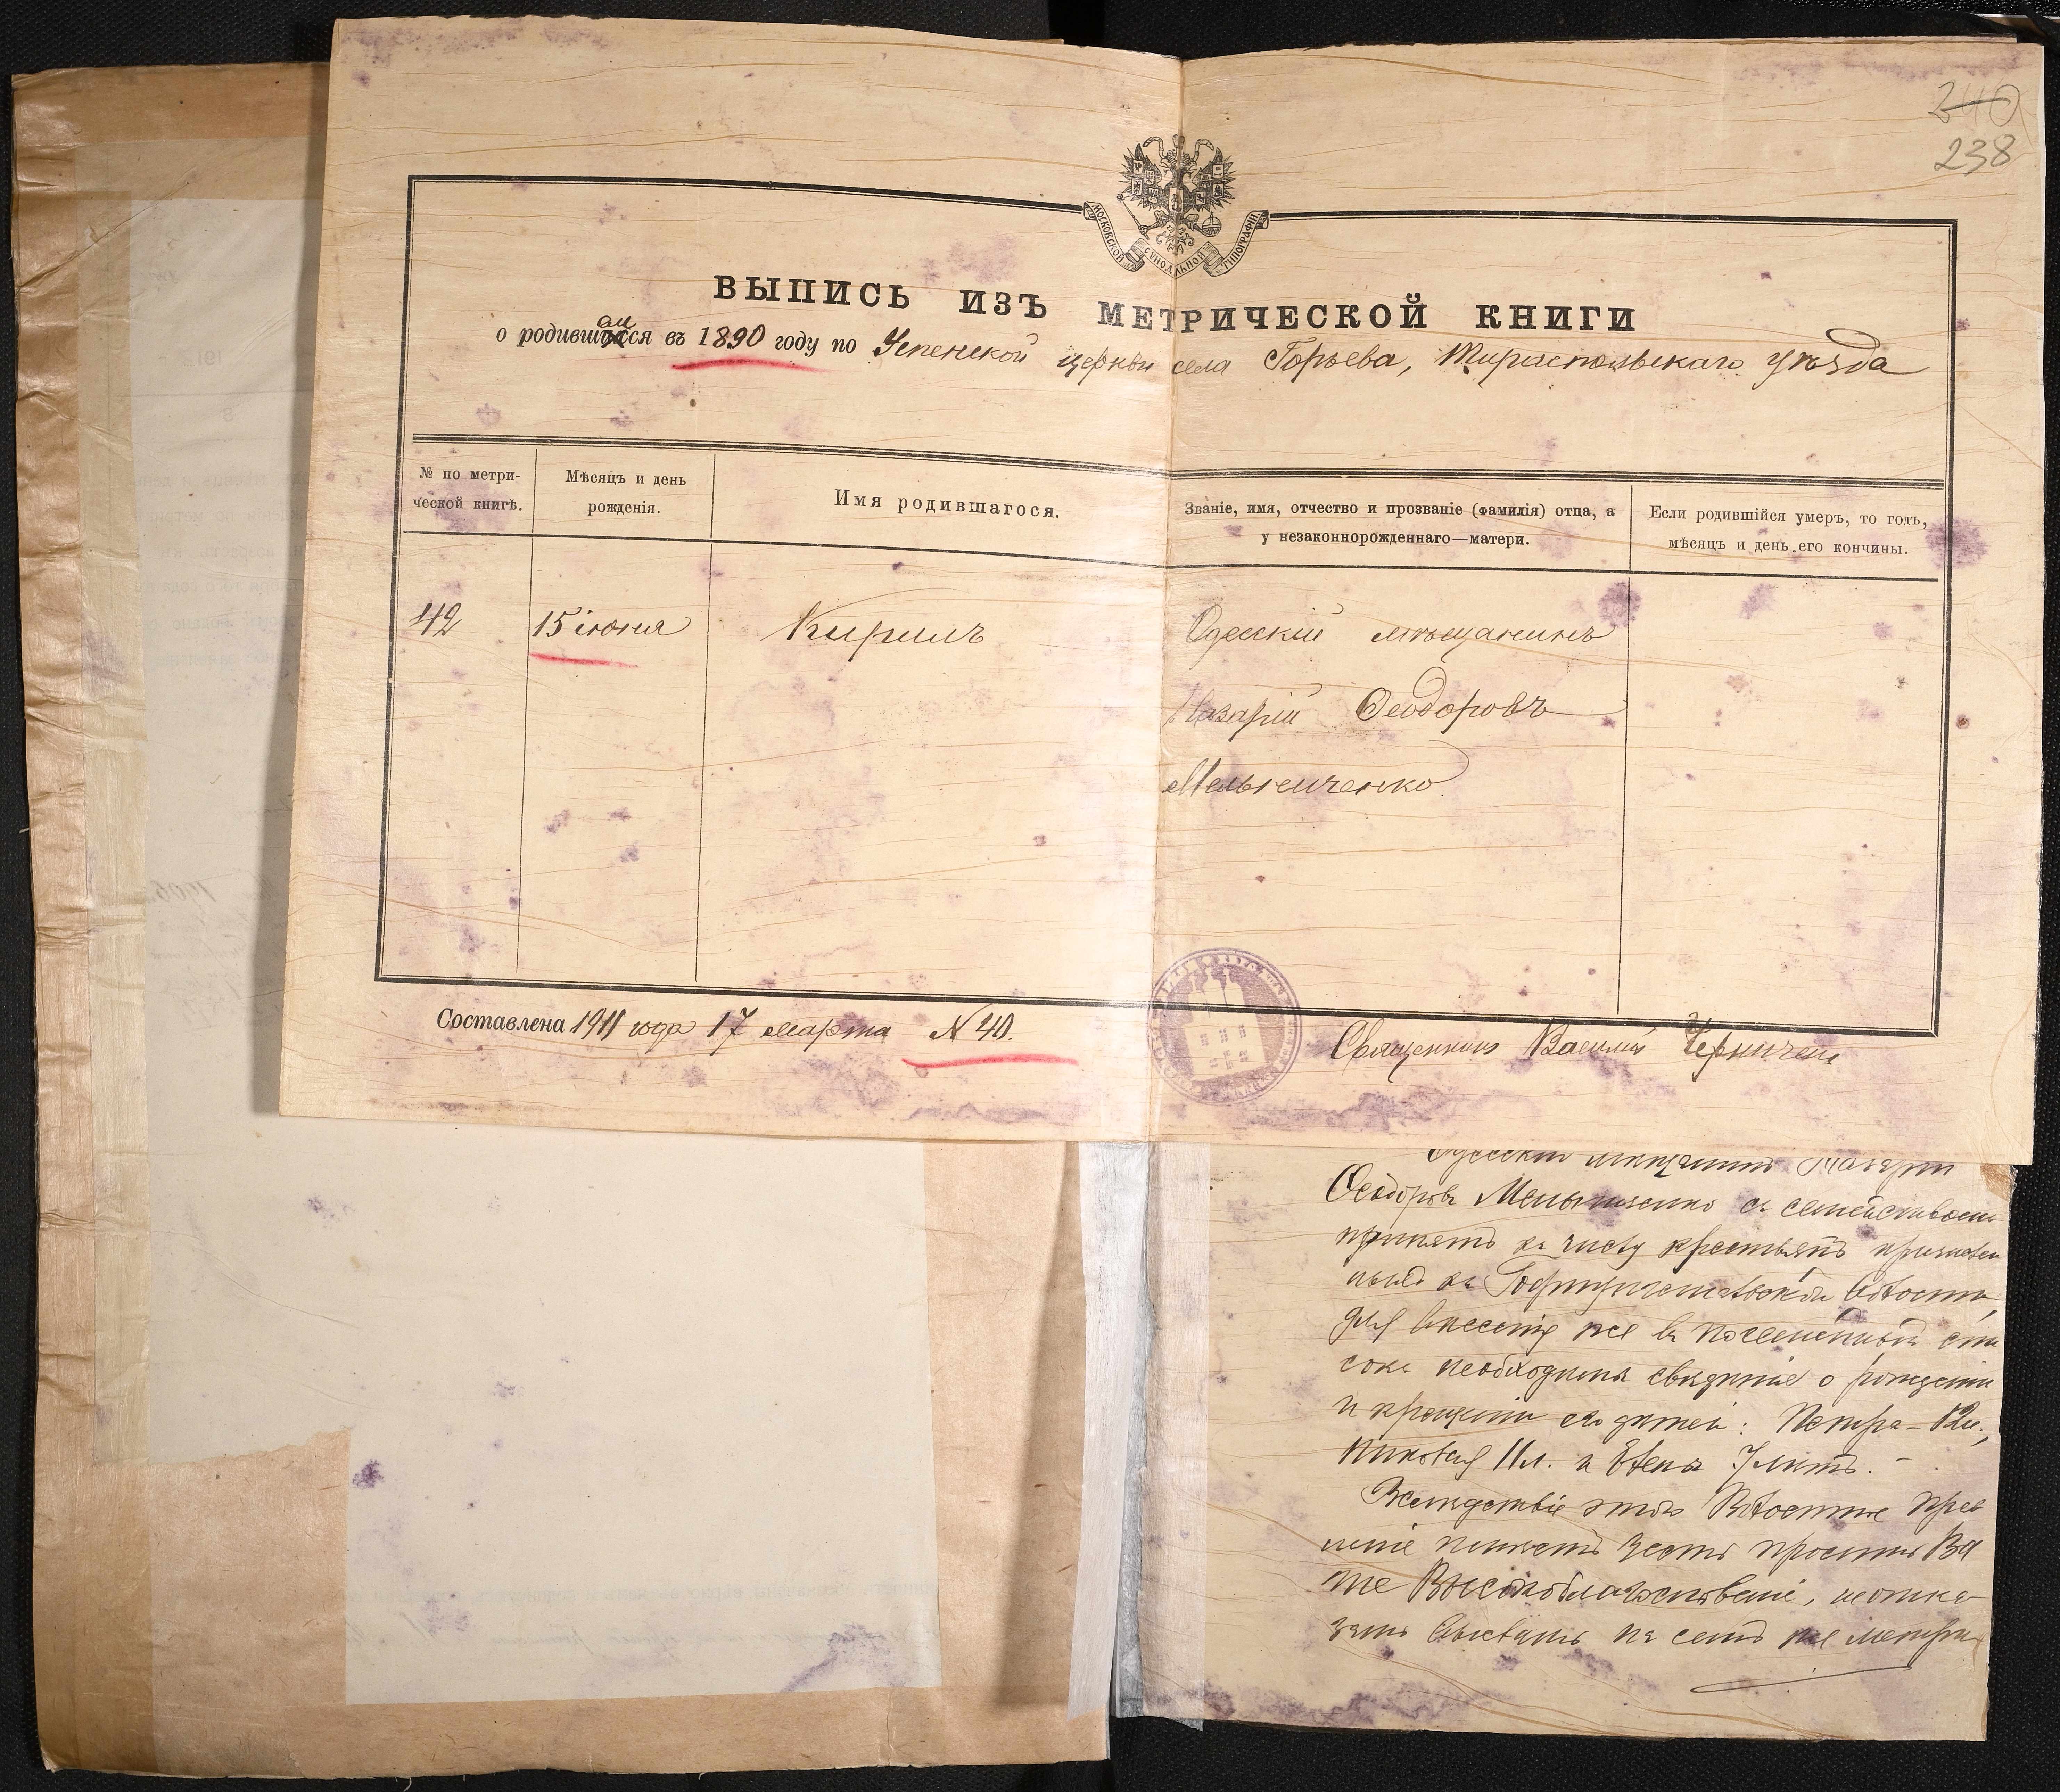 240
238
МОСКОВСКОЙ СѴНОДАЛЬНОЙ ТИПОГРАФІИ
ВЫПИСЬ ИЗЪ МЕТРИЧЕСКОЙ КНИГИ
о родившемся въ 1890 году по Успенской церкви села Горьева, Тираспольскаго уѣзда
№ по метри-
ческой книгѣ.
Мѣсяцъ и день
рожденія.
Имя родившагося.
Званіе, имя, отчество и прозваніе (фамилія) отца, а
у незаконнорожденнаго—матери.
Если родившійся умеръ, то годъ,
мѣсяцъ и день его кончины.
42 15 іюня Кирилъ Одесскій мѣщанинъ
Назарій Ѳеодоровъ
Мельниченко
Составлена 1911 года 17 марта № 40.
Священникъ Василій
Одесскій мѣщанинъ Назарій
Ѳеодоровъ Мельниченко съ семействомъ
принятъ къ числу крестьянъ
къ волости,
для внесенія же въ посемейный спи
сокъ необходимы свѣдѣнія о рожденіи
и крещеніи его дѣтей: Петра - 12 л.,
Николая 11 л. и Елены 7 лѣтъ. -
Вслѣдствіе этого Волостное прав
леніе имѣетъ честь просить Ва
ше Высокоблагословеніе, не отка-
зать выслать на семъ же метри